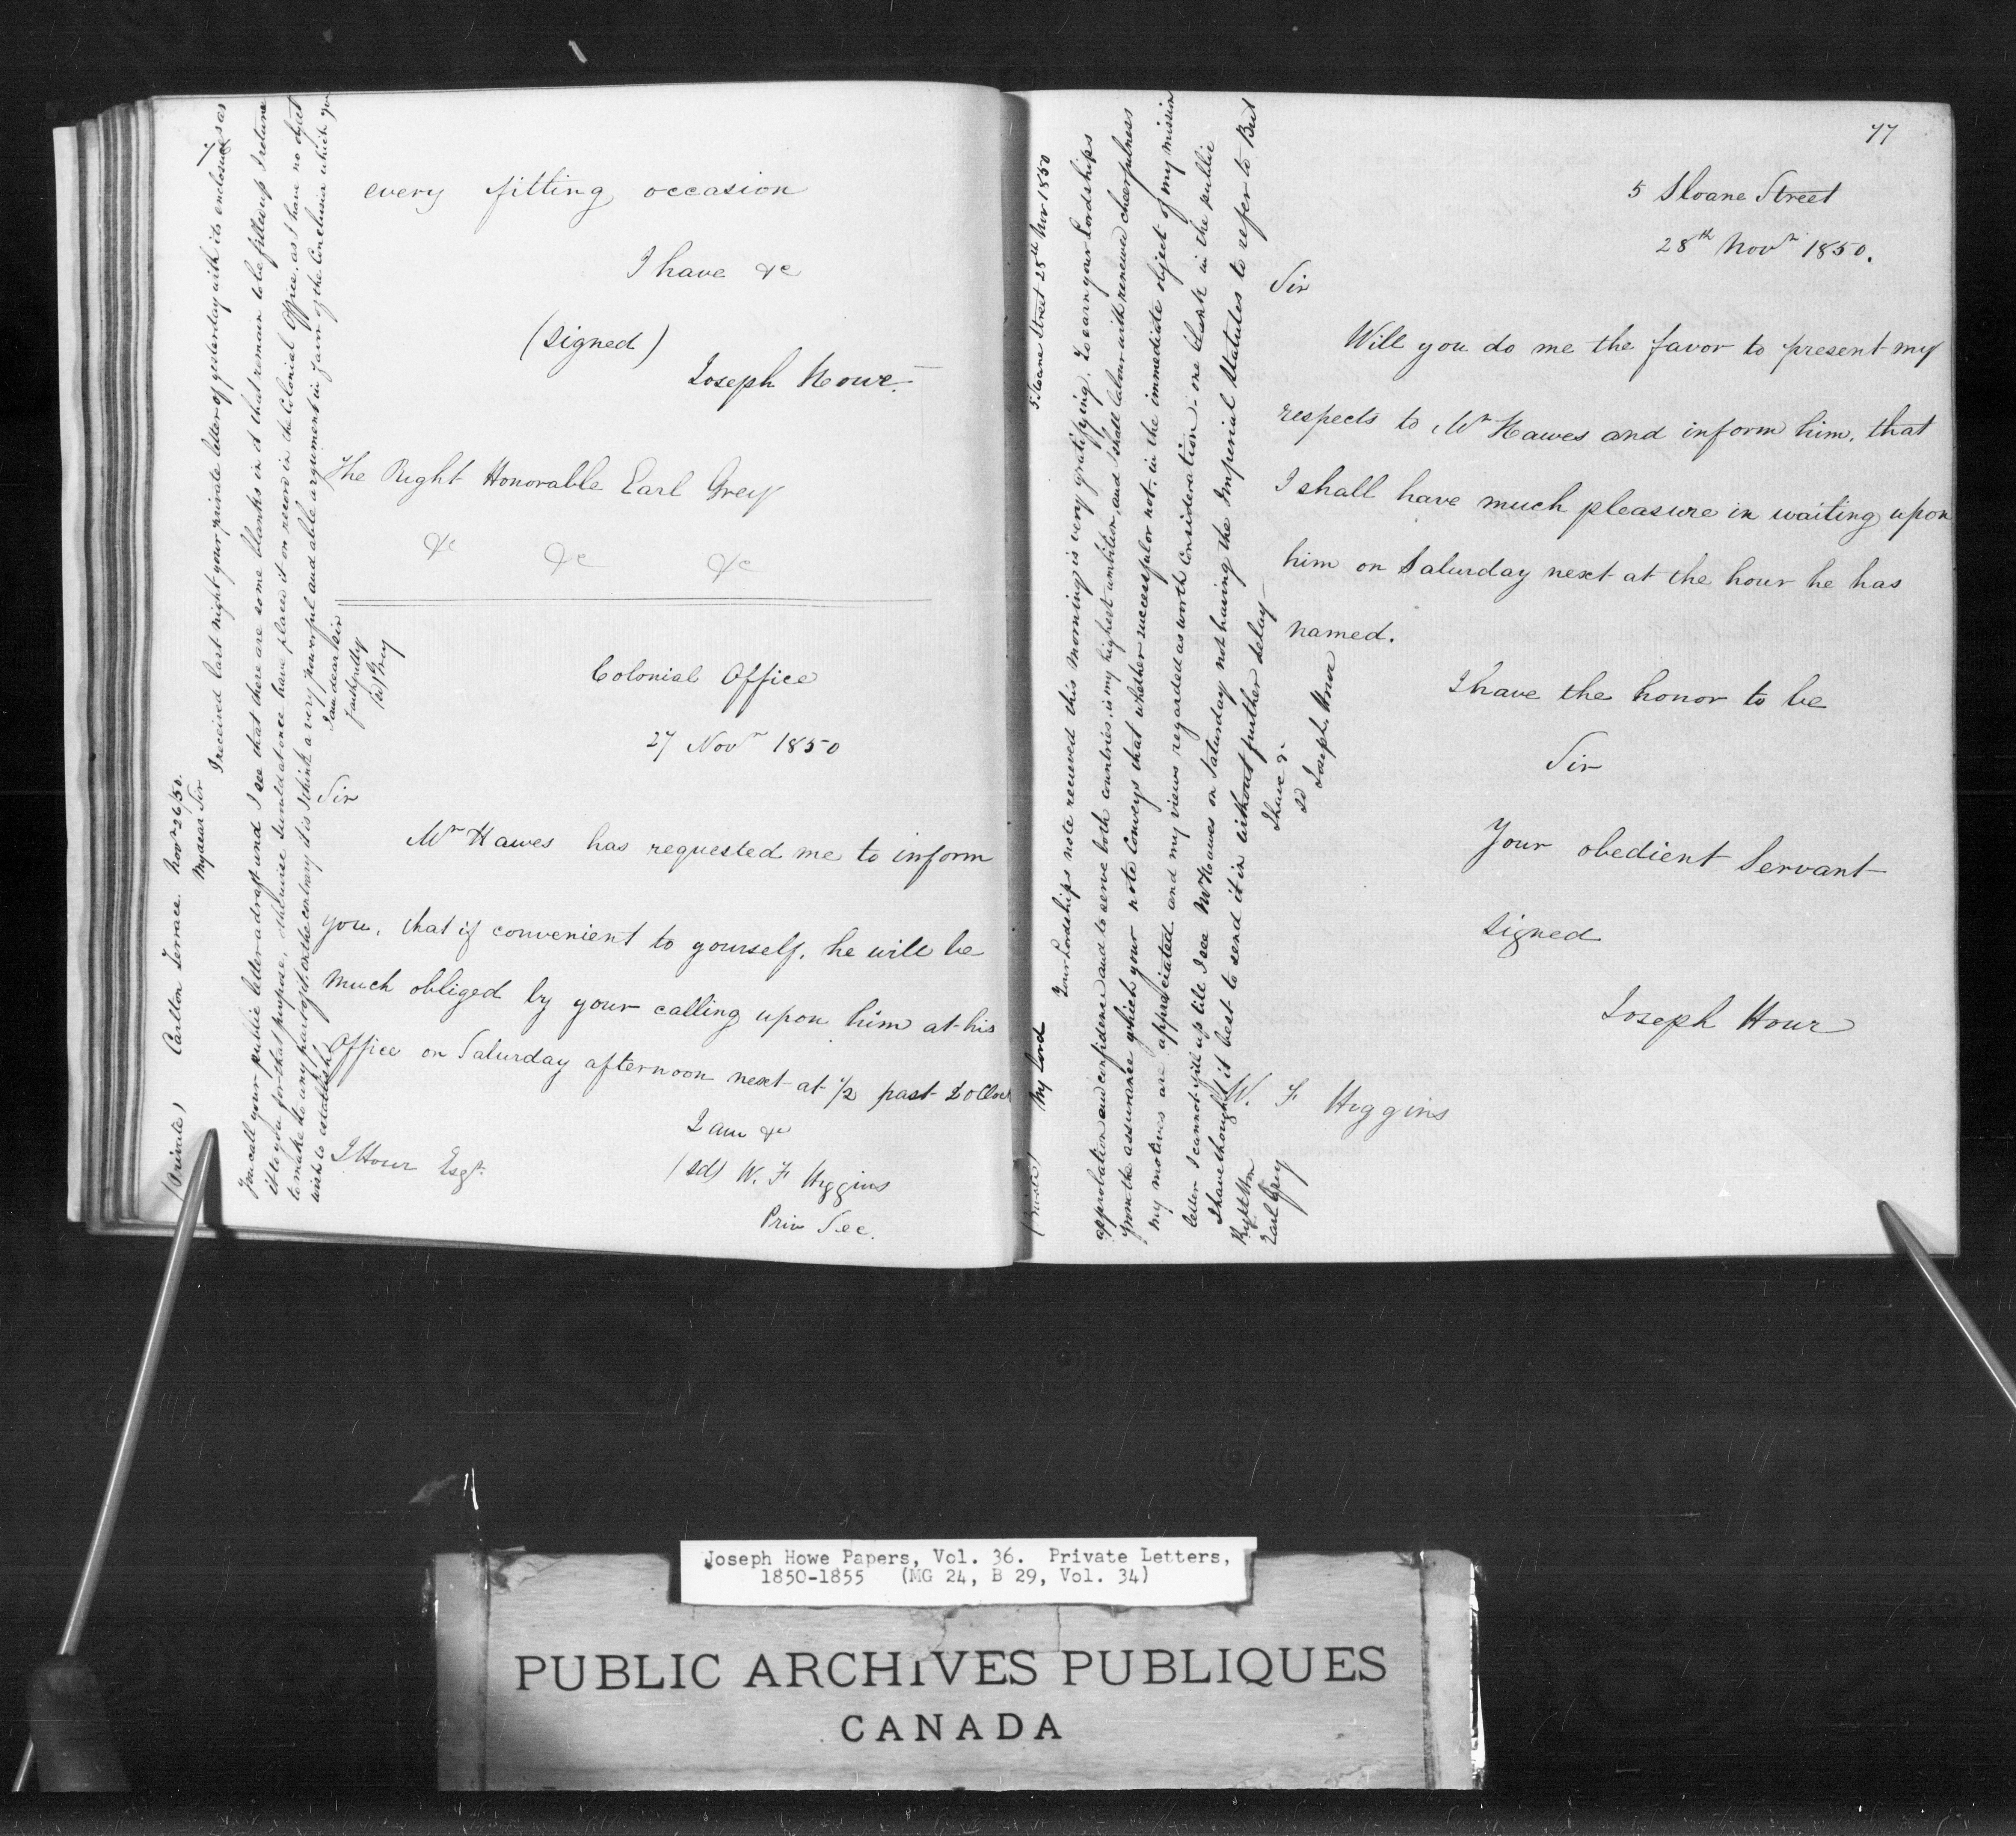 every fitting occasion
I have &c
(signed)
Joseph Howe.
The Right Honorable Earl Grey
&c &c &c
Colonial Office
27 Novr 1850
Sir
Mr Hawes has requested me to inform
you, that if convenient to yourself, he will be
much obliged by your calling upon him at his
Office on Saturday afternoon next at 1/2 past 2 oClock
I am &c
(sd) W. F Higgins
Priv Sec.
J Howe Esqr
(Private) Carlton Terrace Novr 26/50.
My dear Sir
I received last night your private letter of yesterday with its enclosures as
you call your public letter a draft and I see that there are some blanks in it that remain to be filled up I return
it to you for that purpose, otherwise I would at once have placed it on record in the Colonial Office, as I have no object
to make to any part of it. On the contrary it is I think a very powerful and able argument in favor of the conclusion which you
wish to establish.
I am dear Sir
faithfully
(sd) Grey
77
5 Sloane Street
28th Novr 1850.
Sir
Will you do me the favor to present my
respects to Mr Hawes and inform him, that
I shall have much pleasure in waiting upon
him on Saturday next at the hour he has
named.
I have the honor to be
Sir
Your obedient Servant
signed
Joseph Howe
W. F Higgins
(Private) My Lord 5 Sloane Street 28th Nov 1850
Your Lordships note received this morning is very gratifying. To earn your Lordships
approbation and confidence and to serve both countries, is my highest ambition, and I shall labour with renewed cheerfulness
from the assurance which your note conveys that whether successful or not, in the immediate object of my mission
my motives are appreciated and my views regarded as worth consideration - one blank in the public
letter I cannot fill up till I see Mr Hawes on Saturday not having the Imperial Statutes to refer to But
I have thought it best to send it in without further delay
I have &
sd Joseph Howe
Right Hon
Earl Grey
Joseph Howe Papers, Vol. 36. Private Letters,
1850-1855 (MG 24, B 29, Vol. 34)
PUBLIC ARCHIVES PUBLIQUES
CANADA